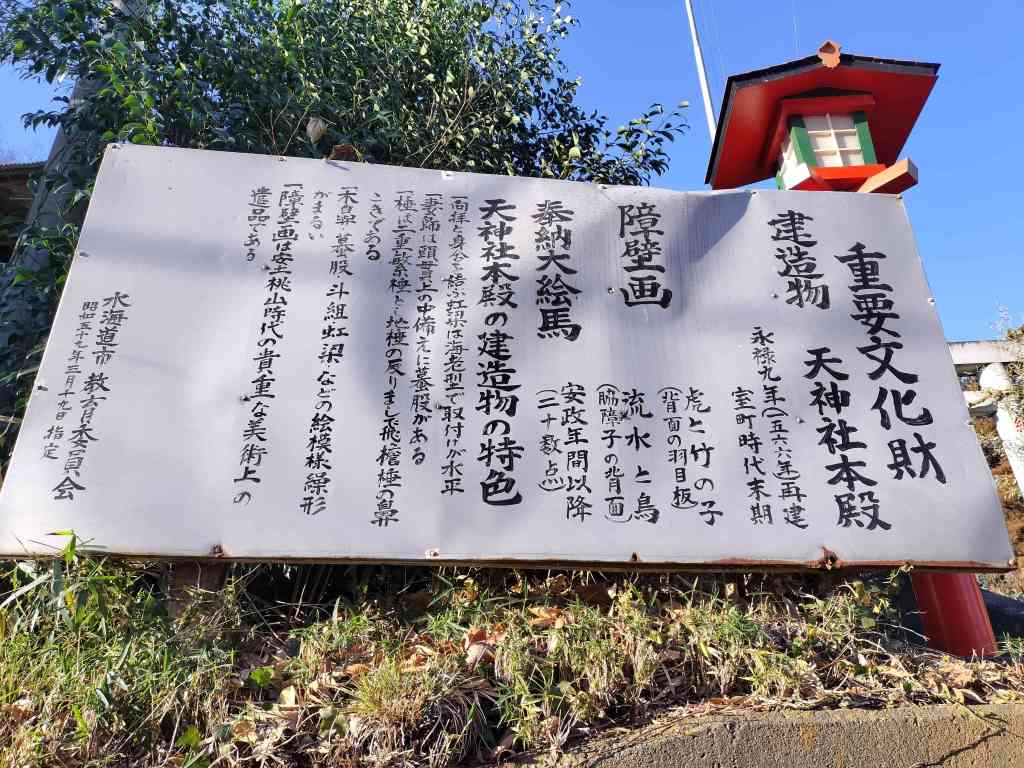 重要文化財
天神社本殿
建造物
永禄九年(一五六六年)再建
室町時代末期
障壁画
虎と竹の子
(背面の羽目板)
流水と鳥
(脇障子の背面)
奉納大絵馬
安政年間以降
(二十数点)
天神社本殿の建造物の特色
一向拝と身舎を結ぶ虹梁は海老型で取付けが水平
一妻飾は頭貫上の中備えに蟇股がある
一棰は二重繁棰と地棰の反りまして飛檐棰の鼻
こきである
一木鼻 蟇股 斗組 虹梁 などの絵模様繰形
がまるい
一障壁画は安土桃山時代の貴重な美術上の
遺品である
水海道市教育委員会
昭和五十七年三月十九日 指定